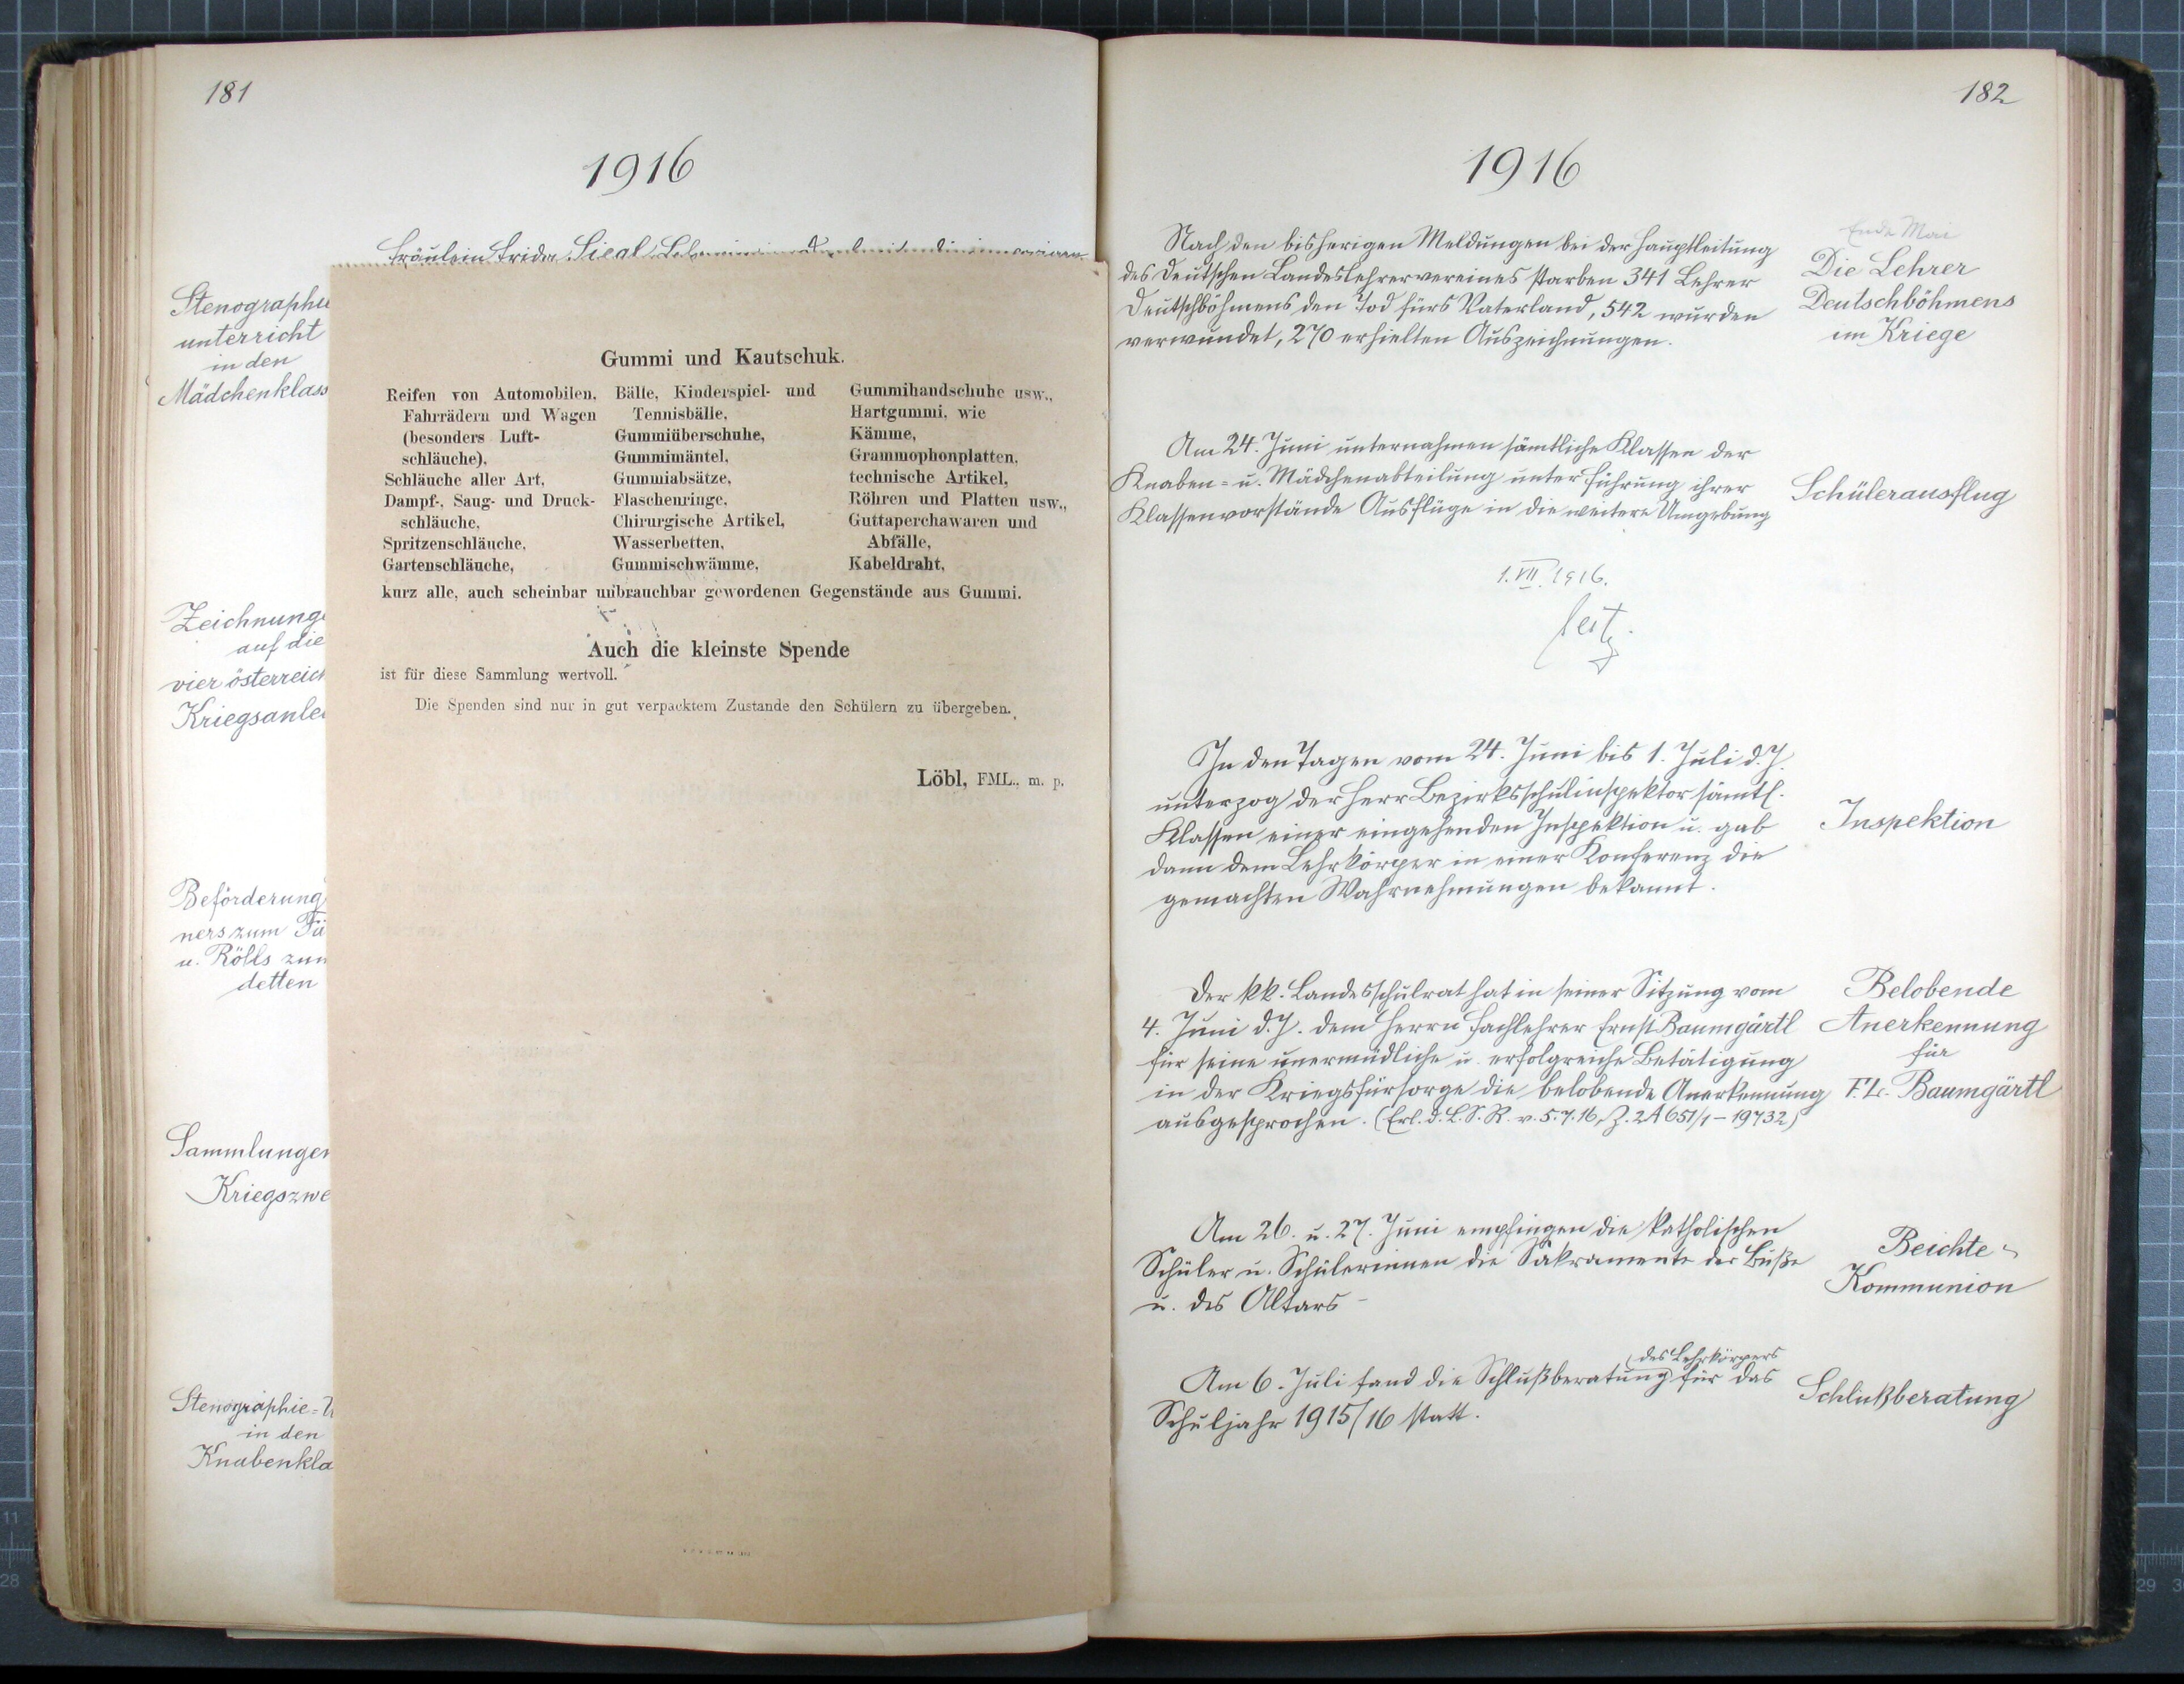 181
1916
Fräulein Frida Siegl
Stenographie
unterricht
in den
Mädchenklass
Zeichnunge
auf die
vier österreich
Kriegsanlei
Beförderung
ners zum Fä
u. Rölls zum
detten
Sammlungen
Kriegszwe
Stenographie-U
in den
Knabenkla
Gummi und Kautschuk.
Reifen von Automobilen,
Fahrrädern und Wagen
(besonders Luft-
schläuche),
Schläuche aller Art,
Dampf-, Saug- und Druck-
schläuche,
Spritzenschläuche,
Gartenschläuche,
Bälle, Kinderspiel- und
Tennisbälle,
Gummiüberschuhe,
Gummimäntel,
Gummiabsätze,
Flaschenringe,
Chirurgische Artikel,
Wasserbetten,
Gummischwämme,
Gummihandschuhe usw.,
Hartgummi, wie
Kämme,
Grammophonplatten,
technische Artikel,
Röhren und Platten usw.,
Guttaperchawaren und
Abfälle,
Kabeldraht,
kurz alle, auch scheinbar unbrauchbar gewordenen Gegenstände aus Gummi.
Auch die kleinste Spende
ist für diese Sammlung wertvoll.
Die Spenden sind nur in gut verpacktem Zustande den Schülern zu übergeben.
Löbl, FML., m. p.
182
1916
Nach den bisherigen Meldungen bei der Hauptleitung
des Deutschen Landeslehrervereines starben 341 Lehrer
Deutschböhmens den Tod fürs Vaterland, 542 wurden
verwundet, 270 erhielten Auszeichnungen.
Ende Mai
Die Lehrer
Deutschböhmens
im Kriege
Am 24. Juni unternahmen sämtliche Klassen der
Knaben- u. Mädchenabteilung unter Führung ihrer
Klassenvorstände Ausflüge in die weitere Umgebung
Schülerausflug
1. VII. 1916.
In den Tagen vom 24. Juni bis 1. Juli d. J.
unterzog der Herr Bezirksschulinspektor sämtl.
Klassen einer eingehenden Inspektion u. gab
dann dem Lehrkörper in einer Konferenz die
gemachten Wahrnehmungen bekannt.
Inspektion
Der kk. Landesschulrat hat in seiner Sitzung vom
4. Juni d. J. dem Herrn Fachlehrer Ernst Baumgärtl
für seine unermüdliche u. erfolgreiche Betätigung
in der Kriegsfürsorge die belobende Anerkennung
ausgesprochen. (Erl. d. L. S. R. v. 5.7.16, Z. 2A 651/1 - 19732)
Belobende
Anerkennung
für
F. L. Baumgärtl
Am 26. u. 27. Juni empfingen die katholischen
Schüler u. Schülerinnen die Sakramente der Buße
u. des Altars
Beichte-
Kommunion
des Lehrkörpers
Am 6. Juli fand die Schlußberatung für das
Schuljahr 1915/16 statt.
Schlußberatung
11
28
29